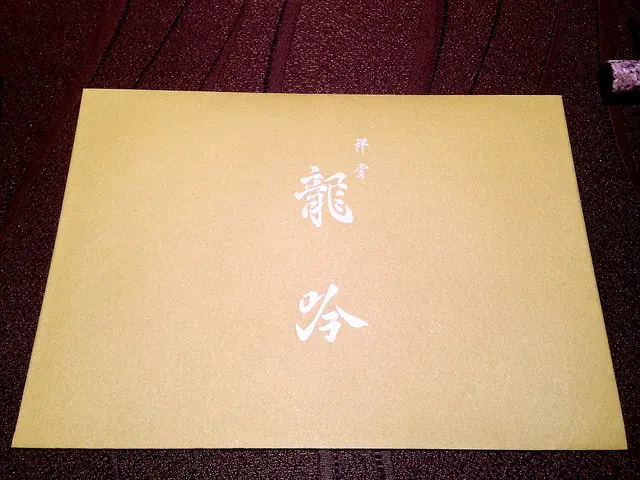 祥雲
龍吟